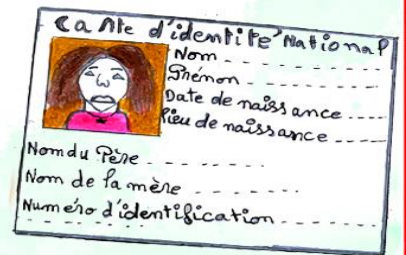 Carte d'identité National
Nom ------
Prénom ------
Date de naissance ----
lieu de naissance ----
Nom du Père ------
Nom de la mère ------
Numéro d'identification ------